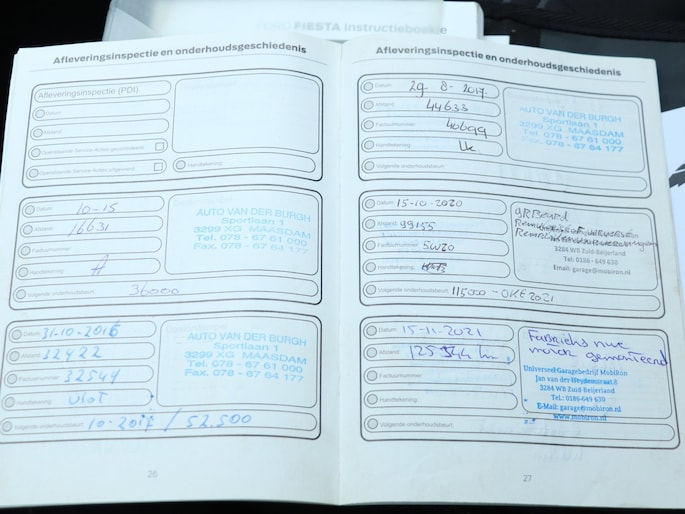 FORD FIESTA Instructieboekje
Afleveringsinspectie en onderhoudsgeschiedenis
Afleveringsinspectie (PDI)
Datum:
Afstand:
Openstaande Service Acties gecontroleerd:
Openstaande Service Acties uitgevoerd:
Handtekening:
Datum: 10-15
Afstand: 16631
Factuurnummer:
Handtekening:
Volgende onderhoudsbeurt: 36000
AUTO VAN DER BURGH
Sportlaan 1
3299 XG MAASDAM
Tel. 078 - 67 61 000
Fax. 078 - 67 64 177
Datum: 31-10-2016
Afstand: 32422
Factuurnummer: 32544
Handtekening:
Volgende onderhoudsbeurt: 10-2017 / 52.500
AUTO VAN DER BURGH
Sportlaan 1
3299 XG MAASDAM
Tel. 078 - 67 61 000
Fax. 078 - 67 64 177
26
Afleveringsinspectie en onderhoudsgeschiedenis
Datum: 29-8-2017
Afstand: 44633
Factuurnummer: 40699
Handtekening:
Volgende onderhoudsbeurt:
AUTO VAN DER BURGH
Sportlaan 1
3299 XG MAASDAM
Tel. 078 - 67 61 000
Fax. 078 - 67 64 177
Datum: 15-10-2020
Afstand: 99155
Factuurnummer: 5W20
Handtekening:
Volgende onderhoudsbeurt: 115000 - OKT 2021
GR Beurd
3284 WB Zuid-Beijerland
Tel.: 0186 - 649 630
Email: garage@mobiron.nl
Datum: 15-11-2021
Afstand: 125344 km
Factuurnummer:
Handtekening:
Volgende onderhoudsbeurt:
Fabrieks nwe
motor gemonteerd
Universeel Garagebedrijf MobiRon
Jan van der Heydenstraat 8
3284 WB Zuid-Beijerland
Tel.: 0186-649 630
E-Mail: garage@mobiron.nl
www.mobiron.nl
27